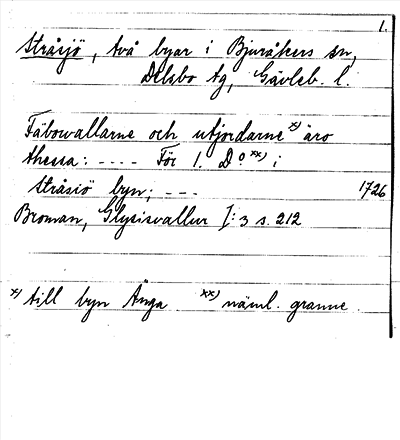 1.
Stråsjö, två byar i Bjuråkers sn,
Delsbo tg, Gävleb. l.
Fäbowallarne och utjordarne x) äro
thessa: ---- För 1. Do xx) i
Stråsiö byn; --- 1726
Broman, Glysisvallur I: 3 s. 212
x) till byn Änga xx) näml. granne.